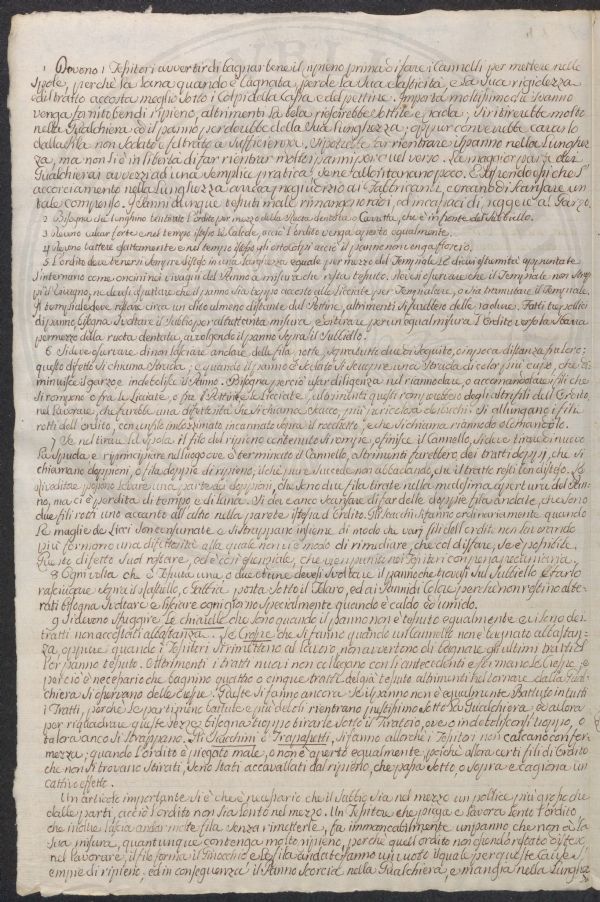 1 Devono i Tessitori avvertir di bagnar bene il ripieno prima di fare i Cannelli per mettere nelle
Spole, perchè la lana quando è bagnata, perde la sua elasticità, e la sua rigidezza
ed il tratto accosta meglio sotto i Colpi della Cassa e del pettine. Importa moltissimo che il panno
venga fornito bendi ripieno, altrimenti la tela riescirebbe sottile e rada; si ritirerebbe molto
nella Gualchiera ed il panno perderebbe della sua lunghezza; oppur converrebbe cavarlo
dalla pila non sodato e feltrato a sufficienza. Si potrebbe far rientrare il panno nella lunghez
za, ma non si è in libertà di far rientrar molti panni per quel verso. La maggior parte dei
Gualchierai avvezzi ad una semplice pratica se ne allontanano poco. E si sono
accorciamento nella lunghezza avvi maggior a' Fabbricanti, cercando di scansare un
tale compenso. I panni dunque tessuti male rimangono radi, ed incapaci di reggere al Garzo.
2 Bisogna che lungi sino tenterete l'ordito per mezzo della Ruota dentata o Cavatta, che è in fronte del subbiello.
3 Devono calcar forte e nel tempo stesso le Calcole, acciò l'ordito venga aperto egualmente.
4 Devono battere esattamente e nel tempo stesso gli ordi colpi acciò il panno non venga floscio.
5 L'ordito deve tenersi sempre disteso in una larghezza eguale per mezzo del Tempiale le di cui estremità appuntate
s'internano come oncini nei vivagni del Panno a misura che resta tessuto. Devesi osservare che il Tempiale non strap
pi il Vivagno, ne devesi aspettare che il panno sia troppo accosto alle Licciate per Tempiallare, o sia tramutare il Tempiale.
Il tempiale deve restare circa un dito almeno distante dal Pettine, altrimenti si farebbero delle radure. Fatti tre pollici
di panno bisogna svoltare il subbio per altrettanta misura e tirare per un egual misura l'Ordito verso la sbarra
per mezzo della ruota dentata, avvolgendo il panno sopra il Subbiello.
6 Si deve osservare di non lasciare andare delle fila rotte sopratutto due di seguito, o in poca distanza fra loro:
questo difetto si chiama Strada; e quando il panno è sodato si scuopre una Strada di color più cupo, che di
minuisce il garzo e indebolisce il Panno. Bisogna perciò usar diligenza nel riannodare, o accomandolare i fili che
si rompono o fra le Licciate, o fra il Pettine e le Licciate, altrimenti questi romperebbero degli altri fili dell'Ordito,
nel lavorare, che farebbe una difettosità che si chiama Sacco, più pericolosa de' Sacchi. Si allungano i fili
rotti dell'ordito, con un filo imbozzimato incannato sopra il rocchetto, e che si chiama riannodo o comandolo.
7 Se nel tirare la Spola il filo del ripieno contenuto si rompe, o finisce il Cannello, si deve tirar di nuovo
la Spola e riprincipiare nel luogo ove è terminato il Cannello, altrimenti farebbero dei tratti doppj, che si
chiamano doppioni, o fila doppie di ripieno, il che pure succede non abbadando, che il tratto resti ben disteso. Le
spinzettatrici possono levare una parte dei doppioni, che sono due fila tirate nella medesima apertura del Pan
no, ma ci è perdita di tempo e di lana. Si deve anco scansare di far delle doppie fila andate, che sono
due fili rotti uno accanto all'altro nella parete istessa d'Ordito. Gli Stacchi si fanno ordinariamente quando
le maglie de' Licci son consumate e si strappano insieme di modo che varj fili dell'Ordito non lavorando
più formano una difettosità alla quale non vi è modo di rimediare, che col disfare, se è possibile.
Questo difetto suol restare, ed è così essenziale, che viene punito nei Tessitori con pena pecuniaria.
8 Ogni volta che è Tessuta una, o due Canne devesi svoltare il panno che trovasi sul Subbiello e farlo
rasciugare sopra il Rastrello, o Gabbia posta sotto il Telaro, ed ai Panni di Colla perchè non restino alte-
rati bisogna svoltare e lasciare ogni giorno specialmente quando è caldo ed umido.
9 Si devono sfuggire le chiarelle che sono quando il panno non è tessuto egualmente e vi sono dei
tratti non accostati abbastanza. Le Crespe che si fanno quando un Cannello non è bagnato abbastan-
za, oppure quando i Tessitori si rimettono al lavoro non avvertono di bagnare gli ultimi tratti di
lor panno tessuto. Altrimenti i tratti nuovi non collegano con gli antecedenti e formano le Crespe, e
perciò è necessario che bagnino quattro o cinque tratti del già tessuto altrimenti nel tornare dalla Gual-
chiera si osservano delle Crespe. Queste si fanno ancora se il panno non è egualmente Battuto in tutti
i Tratti, perchè le parti piene battute e più deboli rientrano più sotto la Gualchiera, ed allora
per ragguagliare queste pezze bisogna troppo tirarle sotto il Tiratoio, ove o indebolisconsi troppo, o
talora anco si strappano. Gli Scacchini o Trapassetti, si fanno allorchè i Tessitori non calcano con fer-
mezza; quando l'ordito è piegato male, o non è aperto egualmente, poichè allora certi fili di Ordito
che non si trovano stirati, sono stati accavallati dal ripieno, che passa sotto, o sopra e cagiona un
cattivo effetto.
Un articolo importante si è che è necessario che il subbio sia nel mezzo un pollice più grosso che
dalle parti, acciò l'ordito non sia lento nel mezzo. Un Tessitore che piega e lavora lento l'ordito
che inoltre lascia andar molte fila senza rimetterle, fa immancabilmente un panno che non à la
sua misura, quantunque contenga molto ripieno, perchè quell'ordito non essendo restato disteso
nel lavorare, il filo forma il Ginocchio e le fila andate fanno un vuoto il quale per queste cause si
empie di ripieno, ed in conseguenza il Panno scorcia nella Gualchiera, e mangia nella lunghez